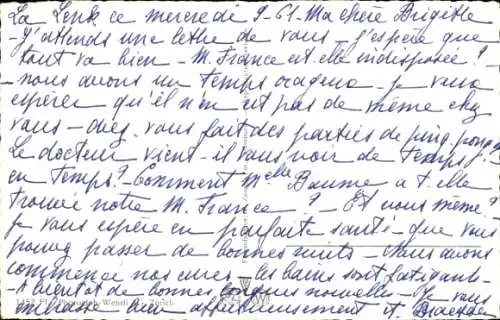 La Lenk ce mercredi 9-61- Ma chère Brigitte
- J'attends une lettre de vous - j'espère que
tout va bien - M. France est-elle indisposée? -
- nous avons un temps orageux - je veux
espérer qu'il n'en est pas de même chez
vous - avez-vous fait des parties de ping-pong
Le docteur vient-il vous voir de temps
en temps? - Comment Melle Baume a t-elle
trouvé notre M. France? - Et vous même?
Je vous espère en parfaite santé - que vous
pouvez passer de bonnes nuits - Nous avons
commencé nos cures - les bains sont fatigants -
- A bientôt de bonnes longues nouvelles - Je vous
1453 Photograph Wehrli Zürich
embrasse bien affectueusement